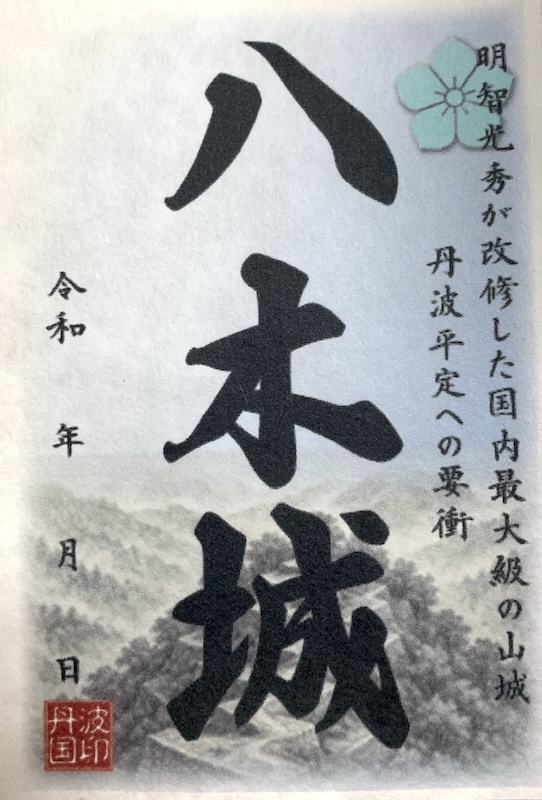 明智光秀が改修した国内最大級の山城
丹波平定への要衝
八木城
令和　年　月　日
丹国
波印